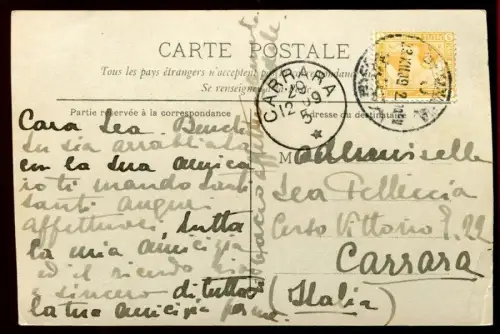 CARTE POSTALE
Tous les pays étrangers n'acceptent pas la correspondance
Se renseigner
Partie réservée à la correspondance
Adresse du destinataire
CARRARA
12 09
5
Cara Lea. Benchè
tu sia arrabbiata
con la tua amica
io ti mando tanti
santi auguri
affettuosi. Tutta
la mia amicizia
ed il ricordo
e sincero di tutta
la tua amicizia
Mademoiselle
Lea Pelliccia
Corso Vittorio E. 22
Carrara
(Italia)